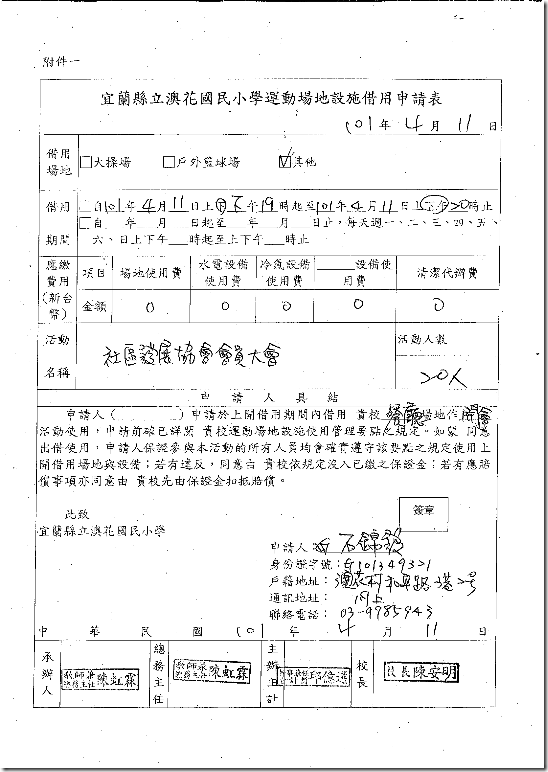 附件一
宜蘭縣立澳花國民小學運動場地設施借用申請表
101年 4 月 11 日
借用場地 □大操場 □戶外籃球場 ☑其他
借用期間 □自101年4月11日上下午19時起至101年4月11日上下午20時止
□自 年 月 日起至 年 月 日止,每天週一、二、三、四、五、
六、日上下午___時起至上下午___時止
應繳費用(新台幣) 項目 場地使用費 水電設備使用費 冷氣設備使用費 ______設備使用費 清潔代辦費
金額 0 0 0 0 0
活動名稱 社區發展協會會員大會 活動人數 20人
申請人具結
申請人(________)申請於上開借用期間內借用 貴校餐廳場地作開會
活動使用,申請前確已詳閱 貴校運動場地設施使用管理要點之規定。如蒙 同意
出借使用,申請人保證參與本活動的所有人員均會確實遵守該要點之規定使用上
開借用場地與設備;若有違反,同意由 貴校依規定沒入已繳之保證金;若有應賠
償事項亦同意由 貴校先由保證金扣抵賠償。
此致 簽章
宜蘭縣立澳花國民小學
申請人:石錦
身份證字號:101349321
戶籍地址:澳花村 路 號
通訊地址:同上
聯絡電話:03-9985943
中華民國101年 4 月 11 日
承辦人 教師兼總務主任 陳虹霖 總務主任 教師兼總務主任 陳虹霖 主辦會計 校長 校長 陳安明